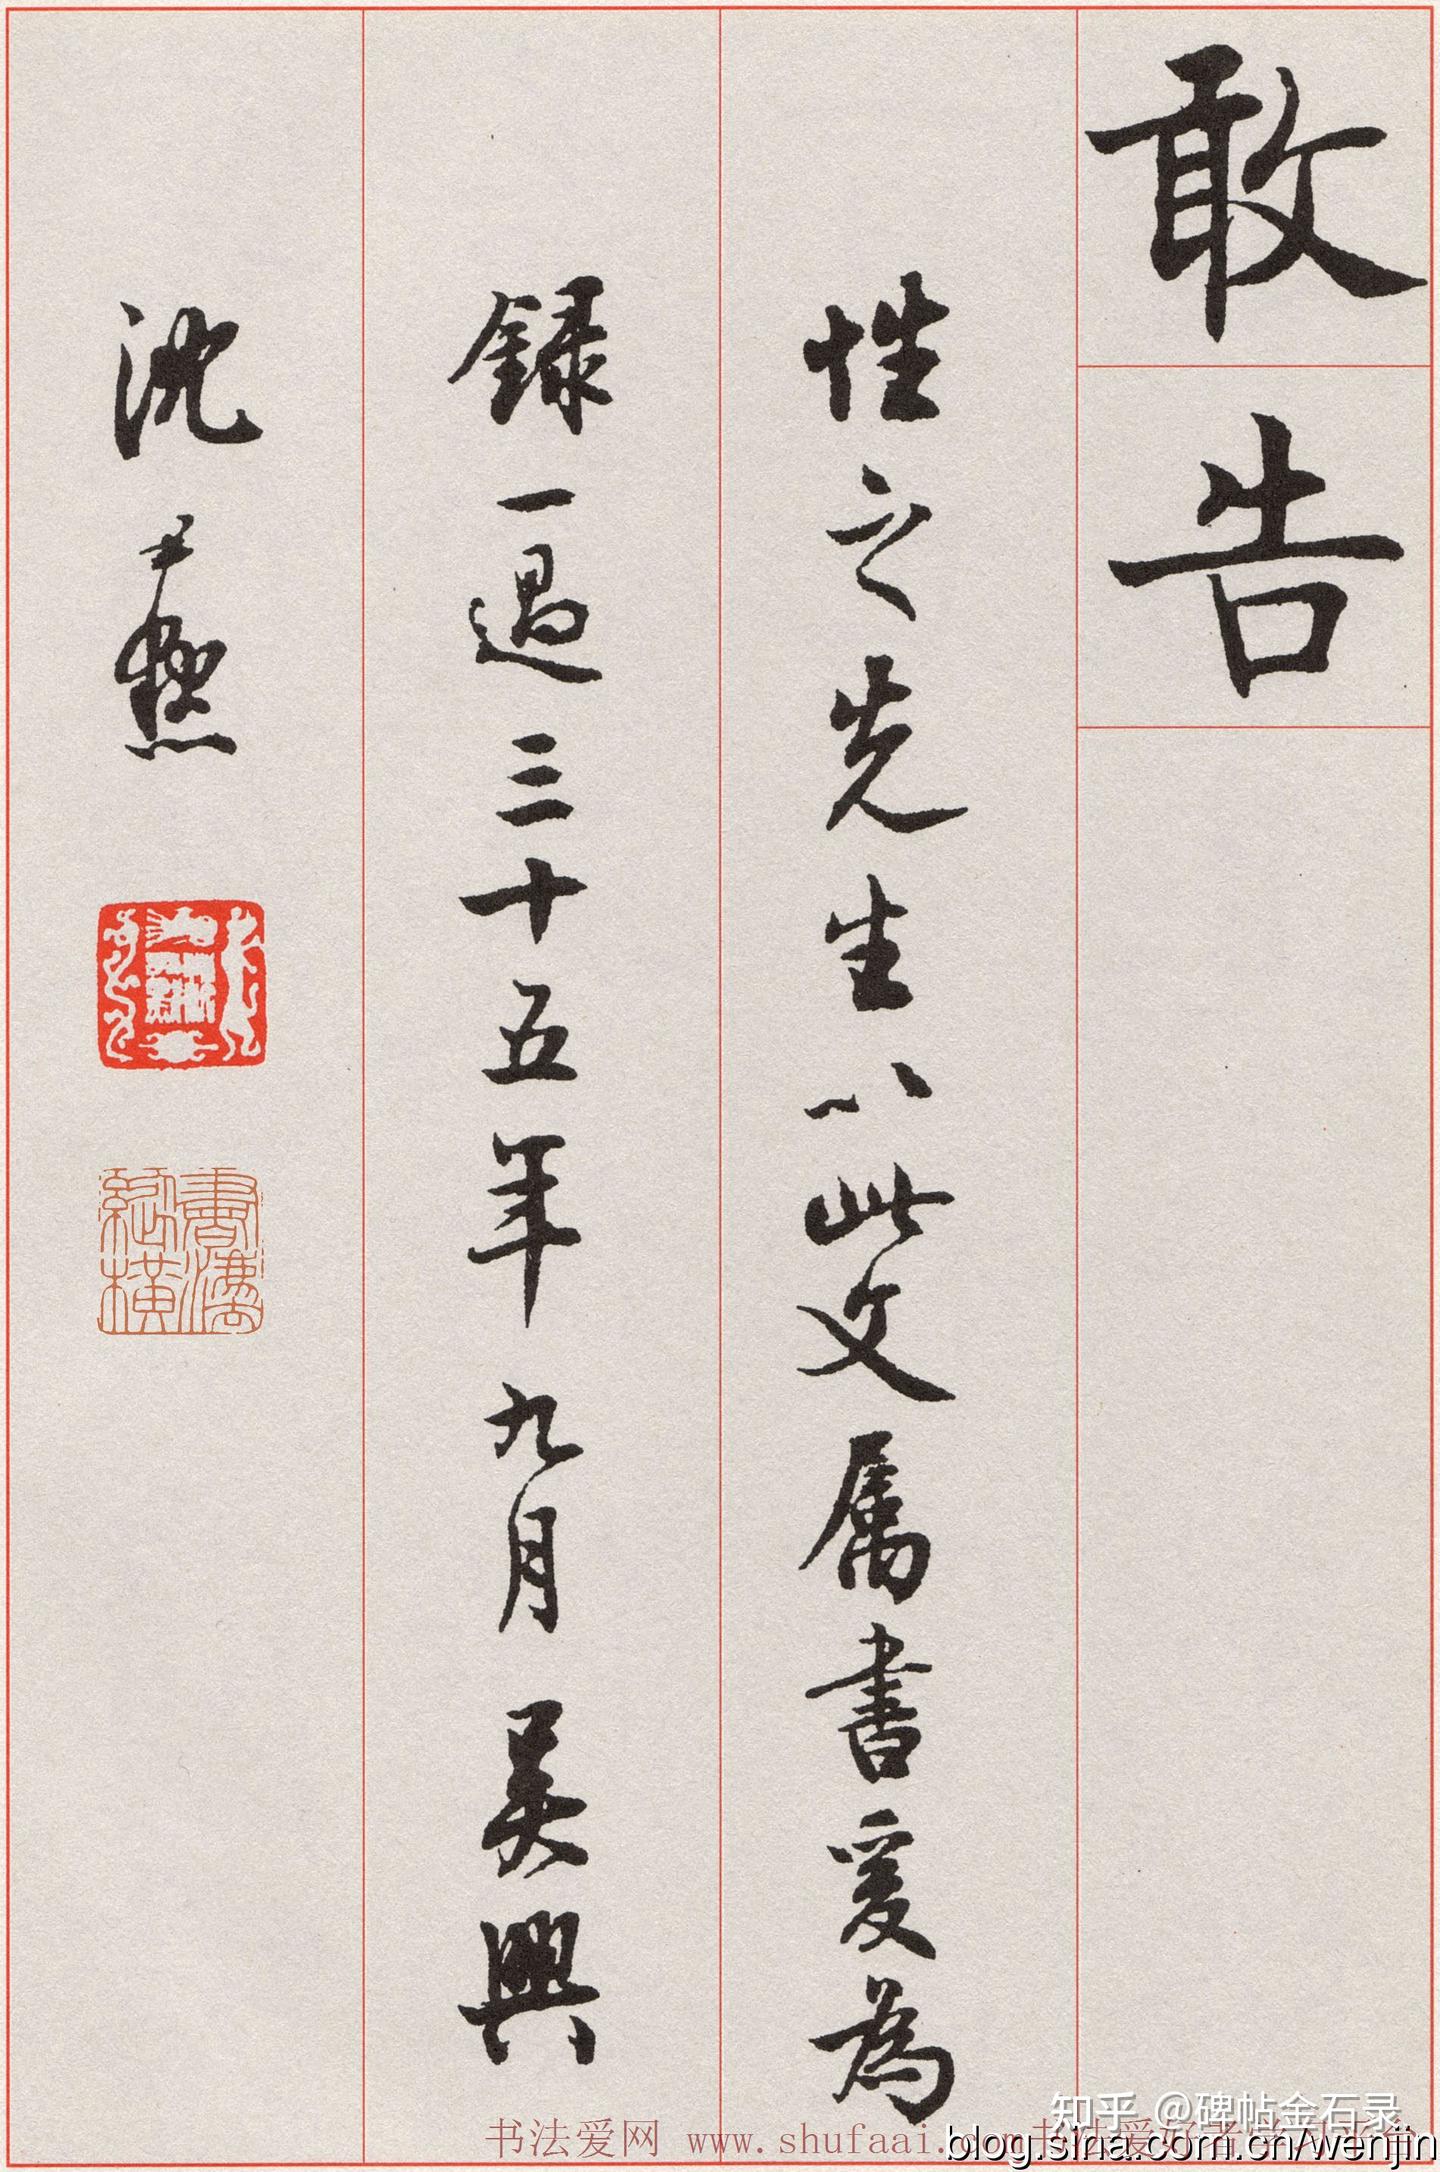 敢告
性之先生以此文属書爰為
録一過三十五年九月吴興
沈尹默
書湊
縱橫
知乎 @碑帖金石录
书法爱网 www.shufaai.com书法爱好者学习平台
blog.sina.com.cn/wenjin